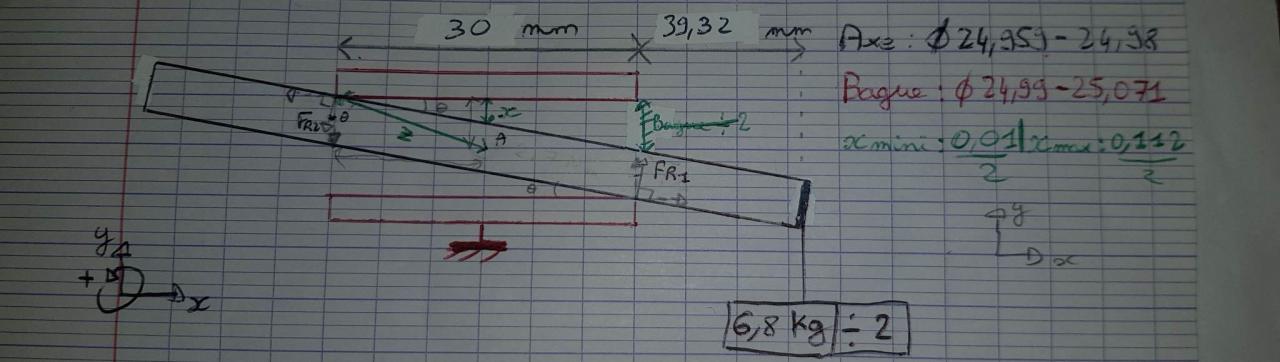 30 mm 39,32 mm
Axe : ϕ 24,959 - 24,98
Bague : ϕ 24,99 - 25,071
x mini : 0,01/2 x max : 0,112/2
θ x Bague ÷ 2
FR2 θ
z A
FR1
θ
y
x
y
+
x
6,8 Kg ÷ 2